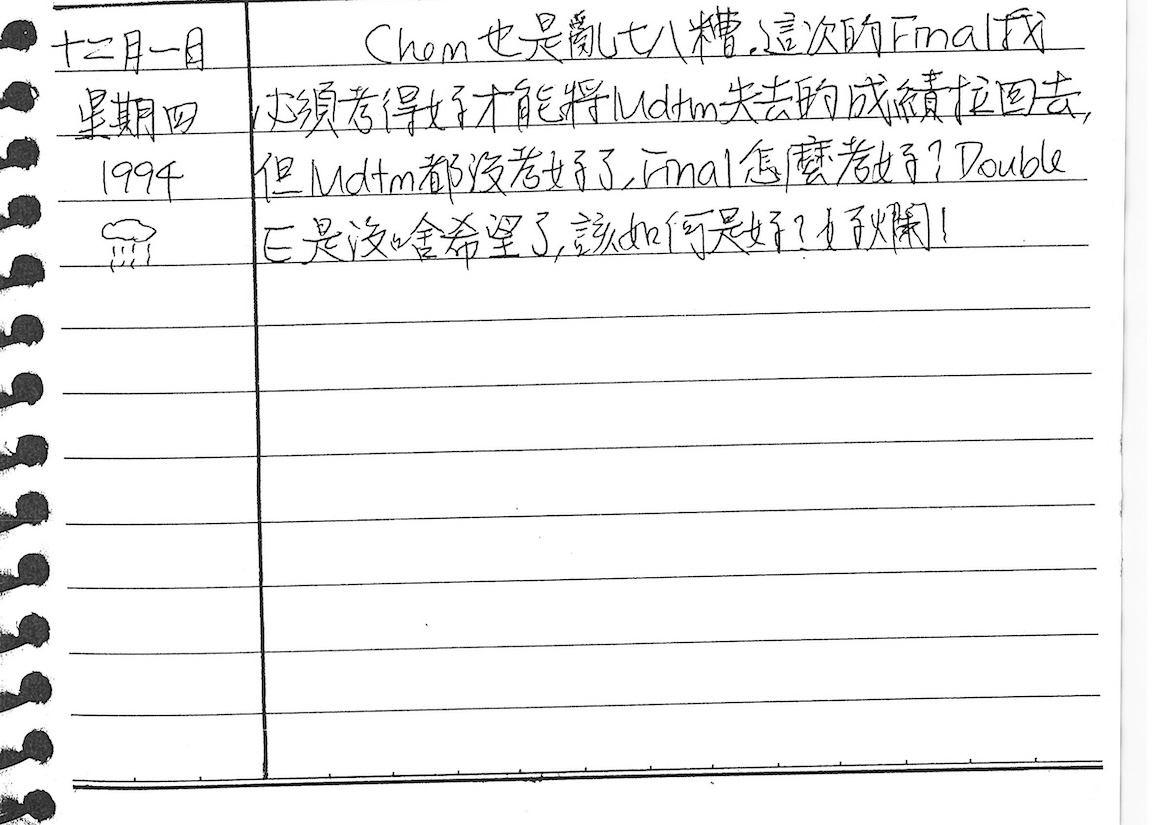 十二月一日
星期四
1994
Chem也是亂七八糟.這次的Final我
必須考得好才能將Midtm失去的成績拉回去,
但Midtm都沒考好了,Final怎麼考好?Double
E是沒啥希望了,該如何是好?好爛!